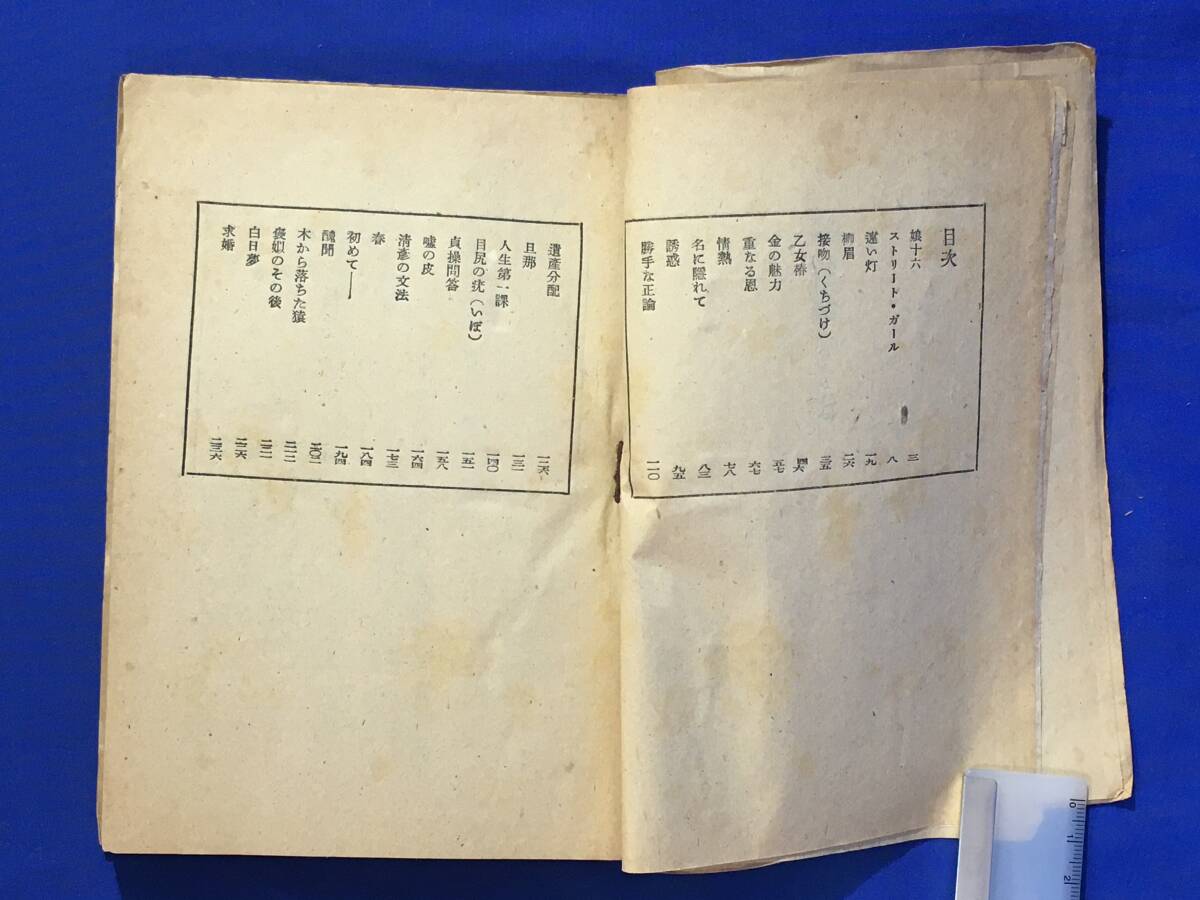 目次
娘十六 三
ストリート・ガール 八
遠い灯 一九
柳眉 二六
接吻(くちづけ) 三五
乙女椿 四六
金の魅力 五七
重なる恩 六七
情熱 七八
名に隠れて 八三
誘惑 九五
勝手な正論 一一〇
遺産分配 一二六
旦那 一三一
人生第一課 一四〇
目尻の疣(いぼ) 一五一
貞操問答 一五八
嘘の皮 一六四
清彦の文法 一七三
春 一八四
初めて―― 一九四
醜聞 二〇二
木から落ちた猿 二一二
褒姒のその後 二二一
白日夢 二二六
求婚 二三六
0 1 2